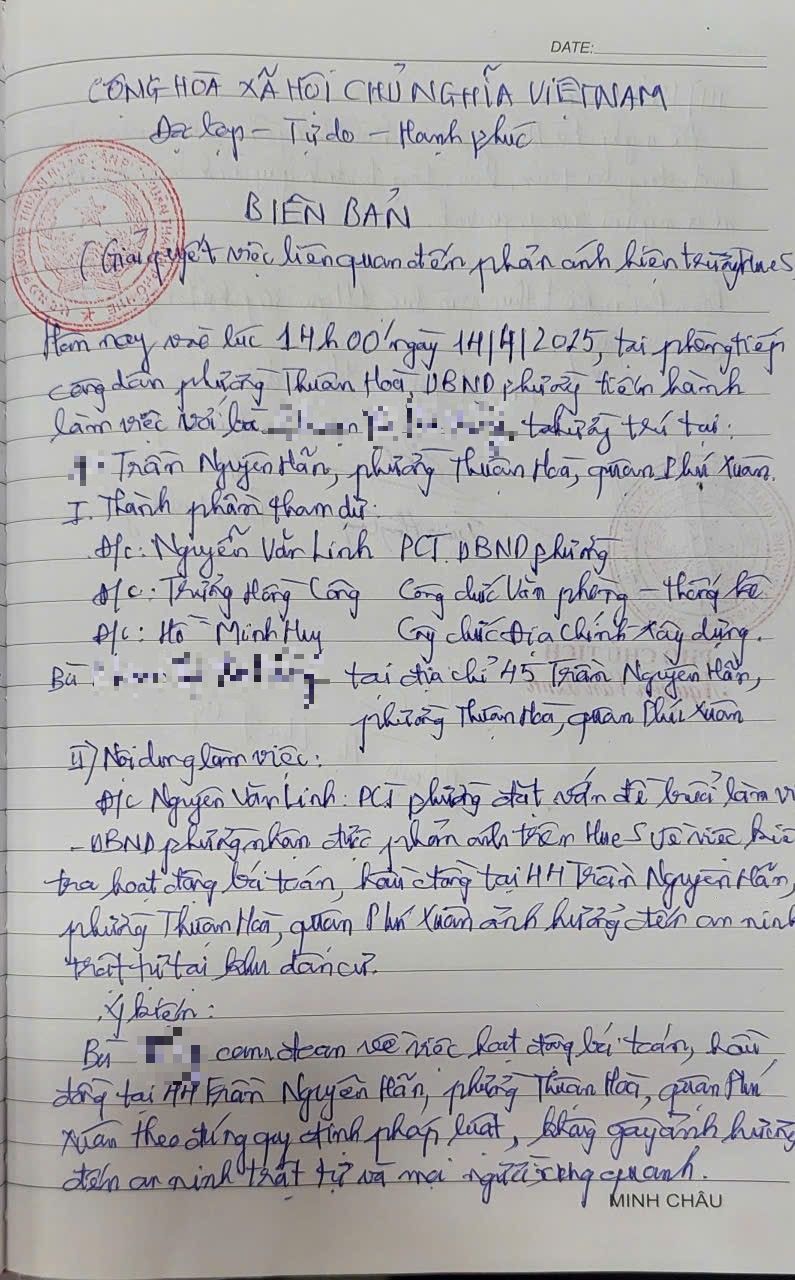 DATE:
CÔNG HÒA XÃ HỘI CHỦ NGHĨA VIỆT NAM
Độc lập - Tự do - Hạnh phúc
BIÊN BẢN
(Giải quyết việc liên quan đến phản ánh hiện trường Hue S
Hôm nay vào lúc 14h00' ngày 14/4/2025, tại phòng tiếp
công dân phường Thuận Hoà, UBND phường tiến hành
làm việc với bà thường trú tại:
Trần Nguyên Hãn, phường Thuận Hoà, quận Phú Xuân.
I. Thành phần tham dự:
Đ/c: Nguyễn Văn Linh PCT. UBND phường
Đ/c: Trương Hồng Công Công chức Văn phòng - thống kê
Đ/c: Hồ Minh Huy Công chức Địa chính - xây dựng.
Bà tại địa chỉ 45 Trần Nguyên Hãn,
phường Thuận Hoà, quận Phú Xuân
II) Nội dung làm việc:
Đ/c Nguyễn Văn Linh: PCT phường đặt vấn đề buổi làm v
- UBND phường nhận được phản ánh trên Hue S về việc kiể
tra hoạt động bói toán, hầu đồng tại 44 Trần Nguyên Hãn,
phường Thuận Hoà, quận Phú Xuân ảnh hưởng đến an ninh
trật tự tại khu dân cư.
Ý kiến:
Bà cam đoan về việc hoạt động bói toán, hầu
đồng tại 44 Trần Nguyên Hãn, phường Thuận Hoà, quận Phú
Xuân theo đúng quy định pháp luật, không gây ảnh hưởng
đến an ninh trật tự và mọi người xung quanh.
MINH CHÂU